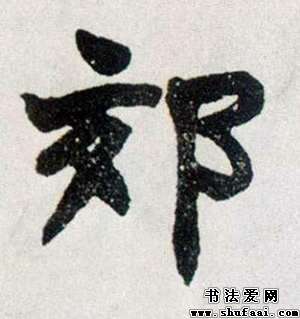 郊
书法爱网
www.shufaai.com